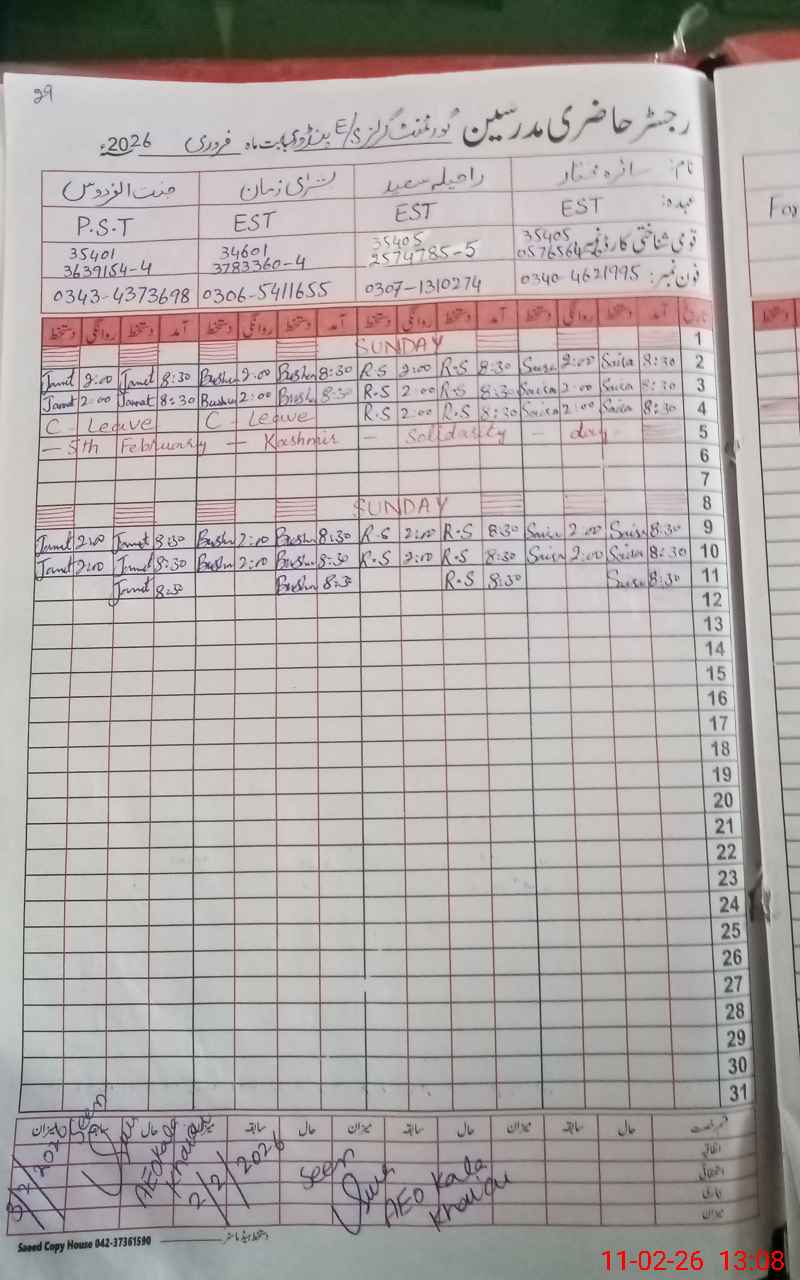 29
رجسٹر حاضری مدرسین گورنمنٹ گرلز E/S پنڈوری بابت ماہ فروری 2026ء
نام: سائرہ ممتاز راحیلہ سعید بشریٰ زمان جنت الفردوس
عہدہ: EST EST EST P.S.T
قومی شناختی کارڈ نمبر 35405 35405 2574785-5 34601 3783360-4 35401 3639154-4
فون نمبر: 0340-4621995 0307-1310274 0306-5411655 0343-4373698
تاریخ آمد دستخط روانگی دستخط آمد دستخط روانگی دستخط آمد دستخط روانگی دستخط آمد دستخط روانگی دستخط
SUNDAY 1
Jannat 2:00 Jannat 8:30 Bushra 2:00 Bushra 8:30 R-S 2:00 R-S 8:30 Saira 2:00 Saira 8:30 2
Jannat 2:00 Jannat 8:30 Bushra 2:00 Bushra 8:30 R-S 2:00 R-S 8:30 Saira 2:00 Saira 8:30 3
C - Leave C - Leave R-S 2:00 R-S 8:30 Saira 2:00 Saira 8:30 4
- 5th February - Kashmir - Solidarity - day 5
6
7
SUNDAY 8
Jannat 2:00 Jannat 8:30 Bushra 2:00 Bushra 8:30 R-S 2:00 R-S 8:30 Saira 2:00 Saira 8:30 9
Jannat 2:00 Jannat 8:30 Bushra 2:00 Bushra 8:30 R-S 2:00 R-S 8:30 Saira 2:00 Saira 8:30 10
Jannat 8:30 Bushra 8:30 R-S 8:30 Saira 8:30 11
12
13
14
15
16
17
18
19
20
21
22
23
24
25
26
27
28
29
30
31
حال سابقہ میزان حال سابقہ میزان حال سابقہ میزان حال میزان
اتفاقی
میزان
Seen
AEO Kala
Khatai
2/2/2026
Seen
AEO Kala
Khatai
Saeed Copy House 042-37361590
11-02-26 13:08